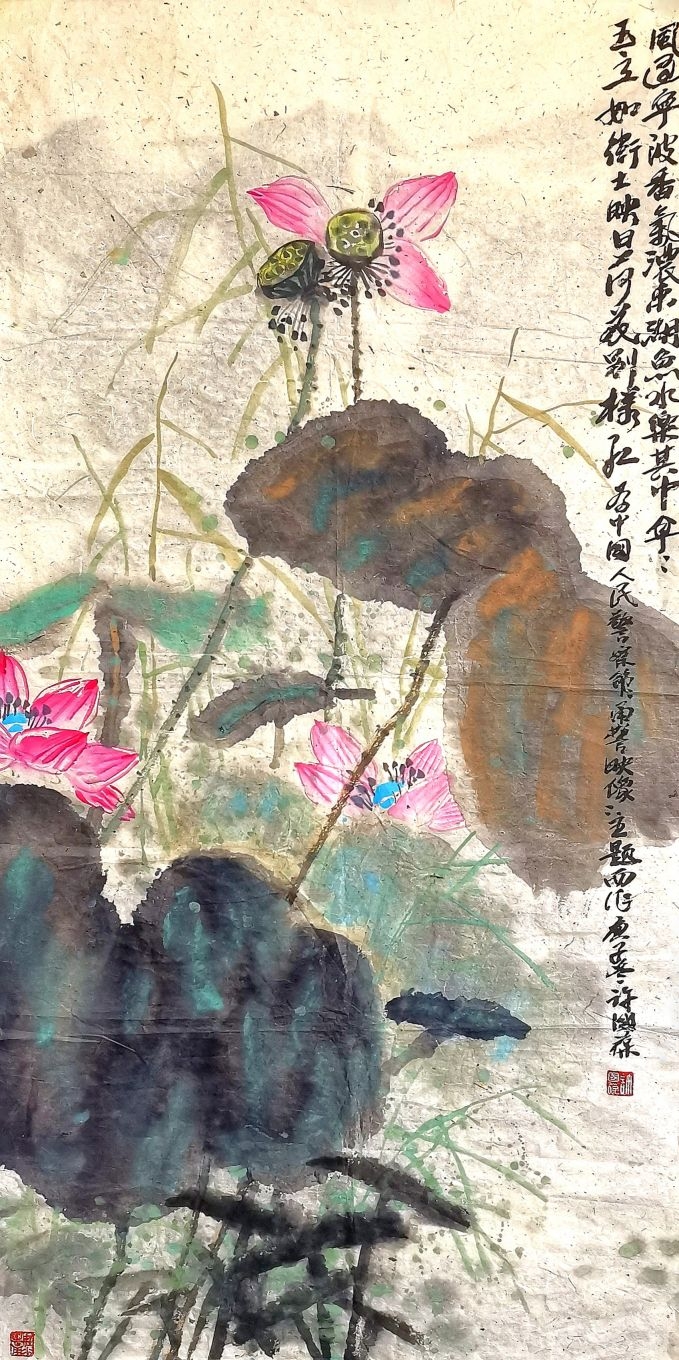 風過寧波香氣濃東湖魚水樂其中亭〻
玉立如衛士映日荷花別樣紅 為中國人民警察節甬警映像主題而作 庚子冬 許國